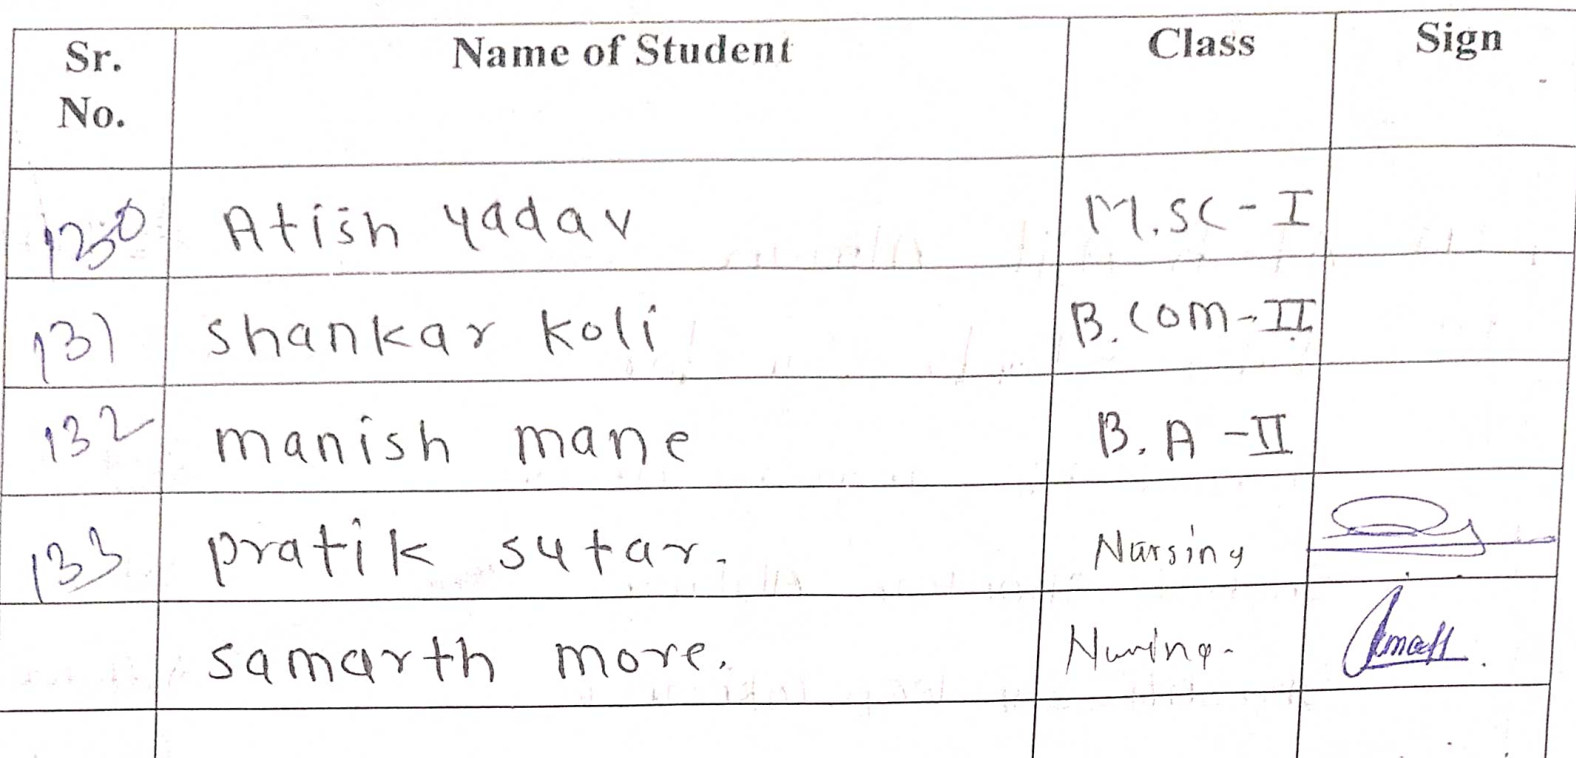 Sr. No. Name of Student Class Sign
130 Atish yadav M.SC - I
131 shankar koli B.COM - II
132 manish mane B.A - II
133 pratik sutar. Nursing
samarth more.